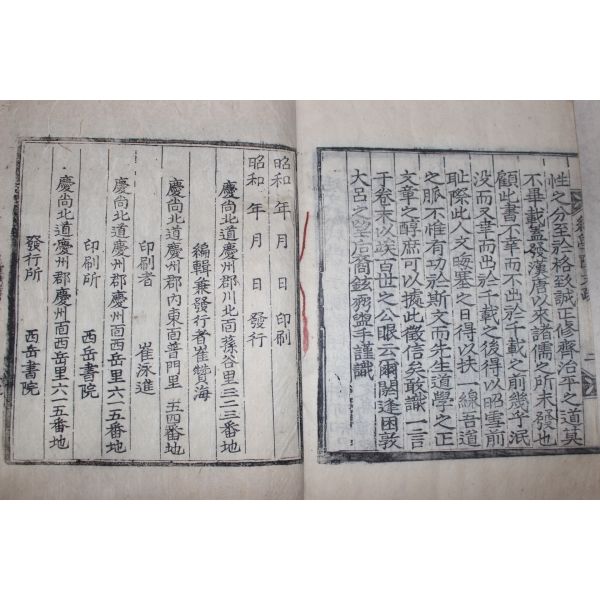 性之分至於格致誠正修齊治平之道莫
不畢載蓋發漢唐以來諸儒之所未發也
顧此書不幸而不出於千載之前幾乎泯
没而又幸而出於千載之後得以昭雪前
恥際此人文晦塞之日得以扶一線吾道
之脈不惟有功於斯文而先生道學之正
文章之醇庶可以據此徵信矣敢識一言
于卷末以竢百世之公眼云爾閼逢困敦
大呂之望后裔鉉弼盥手謹識
二
昭和 年 月 日 印刷
昭和 年 月 日 發行
慶尚北道慶州郡川北面蓀谷里三二三番地
編輯兼發行者 崔贊海
慶尚北道慶州郡內東面普門里 五四番地
印刷者 崔泳進
慶尚北道慶州郡慶州面西岳里六一五番地
印刷所 西岳書院
慶尚北道慶州郡慶州面西岳里六一五番地
發行所 西岳書院